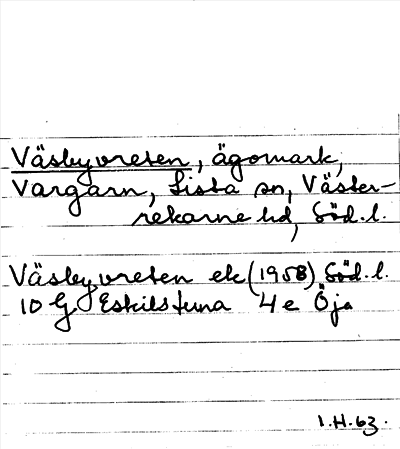 Väsbyvreten, ägomark,
Vargarn, Lista sn, Väster-
rekarne hd, Söd. l.
Väsbyvreten ek (1958) Söd. l.
10 G Eskilstuna 4 e Öja
I.H. 63.